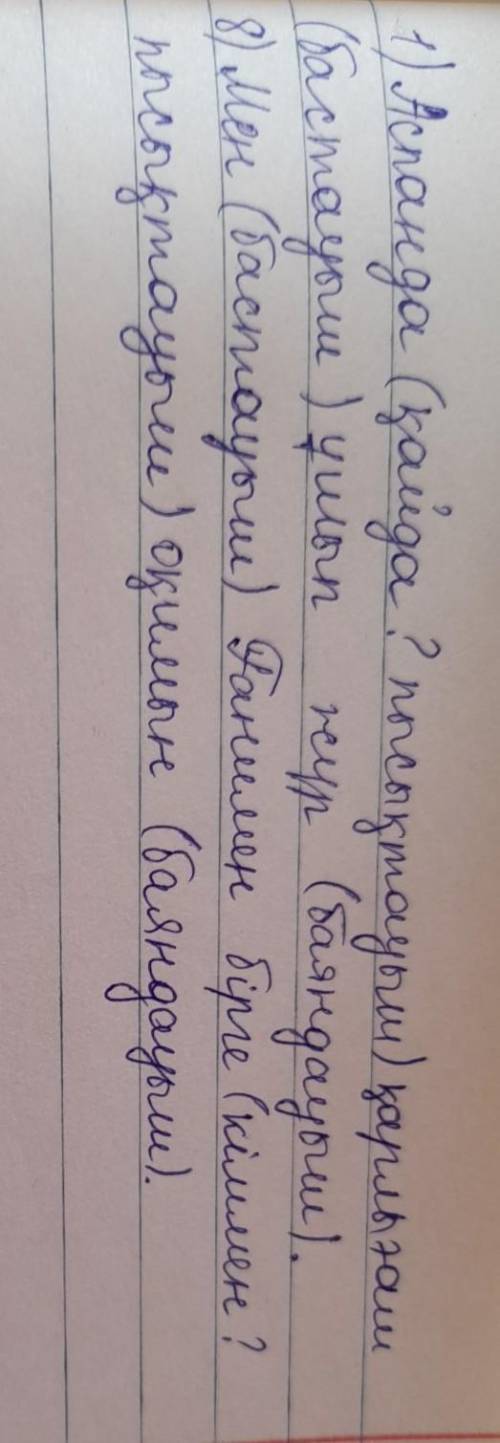 1) Аспанда (қайда? пысықтауыш) қарлығаш
(бастауыш) ұшып жүр (баяндауыш).
8) Мен (бастауыш) Ғанимен бірге (кіммен?
пысықтауыш) оқимын (баяндауыш).